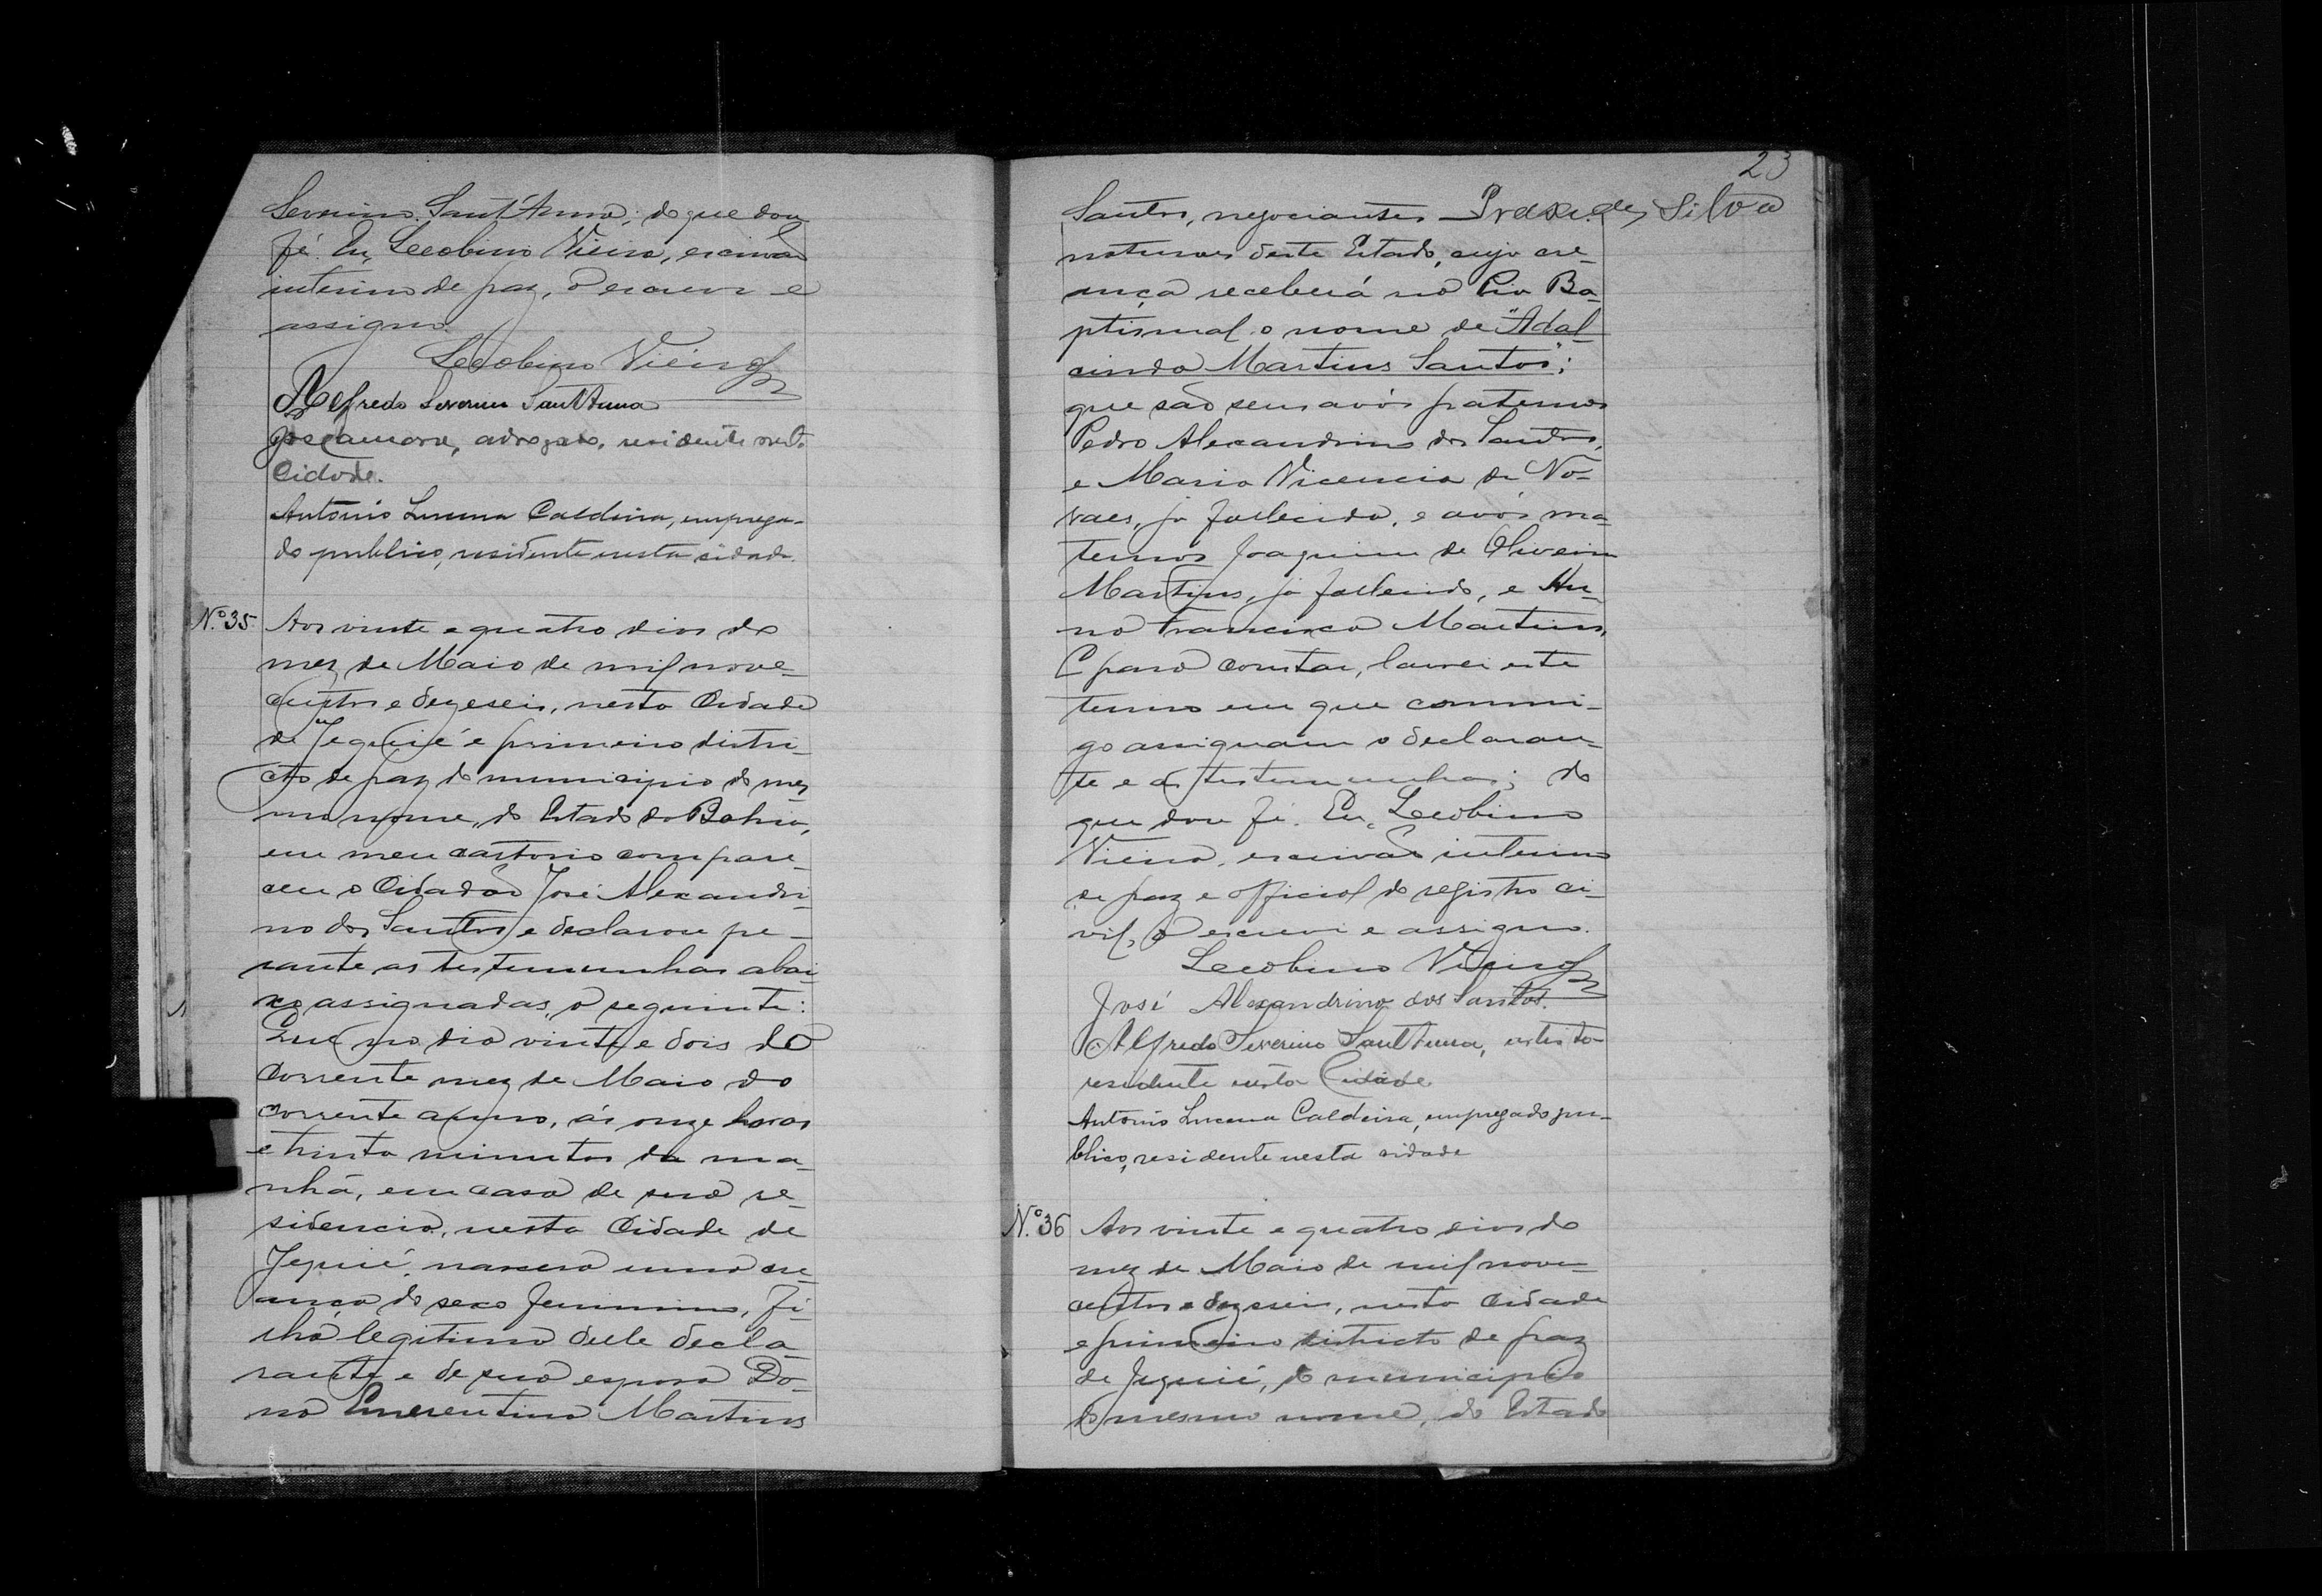 Severino Sant'Anna; do que dou
fé. Eu, Lecobino Vieira, escrivão
interino de paz, o escrevi e
assigno.
Lecobino Vieira
Alfredo Severino Sant'Anna
advogado, residente nesta
Cidade.
Antonio Lucena Caldeira, emprega-
do publico, residente nesta cidade.
Nº 35 Aos vinte e quatro dias do
mez de Maio de mil nove-
centos e dezeseis, nesta Cidade
de Jequié e primeiro distri-
cto de paz do municipio do mes
mo nome, do Estado da Bahia,
em meu cartorio compare-
ceu o Cidadão José Alexandri-
no dos Santos e declarou pe-
rante as testemunhas abai-
xo assignadas, o seguinte:
Que no dia vinte e dois do
corrente mez de Maio do
corrente anno, ás onze horas
e trinta minutos da ma-
nhã, em casa de sua re-
sidencia, nesta Cidade de
Jequié, nasceu uma cre-
ança do sexo feminino, fi-
lha legitima delle decla-
rante e de sua esposa Do-
na Emerentina Martins
23
Santos, negociantes Praxedes Silva
naturaes deste Estado, cuja cre-
ança receberá na Pia Ba-
ptismal o nome de "Adal-
cinda Martins Santos";
que são seus avós paternos
Pedro Alexandrino dos Santos,
e Maria Vicencia de No-
vaes, já fallecida, e avós ma-
ternos Joaquim de Oliveira
Martins, já fallecido, e An-
na Francisca Martins.
E para constar, lavrei este
termo em que commi-
go assignam o declaran-
te e as testemunhas; do
que dou fé. Eu, Lecobino
Vieira, escrivão interino
de paz e official do registro ci-
vil, o escrevi e assigno.
Lecobino Vieira
José Alexandrino dos Santos.
Alfredo Severino Sant'Anna, artista
residente nesta Cidade
Antonio Lucena Caldeira, empregado pu-
blico, residente nesta cidade
Nº 36 Aos vinte e quatro dias do
mez de Maio de mil nove-
centos e dezeseis, nesta Cidade
e primeiro districto de paz
de Jequié, do municipio
do mesmo nome, do Estado